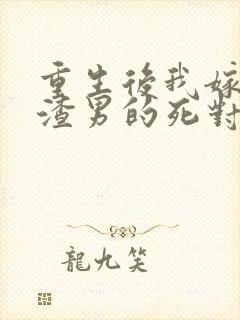 重生後我嫁
渣男的死對
龍九笑